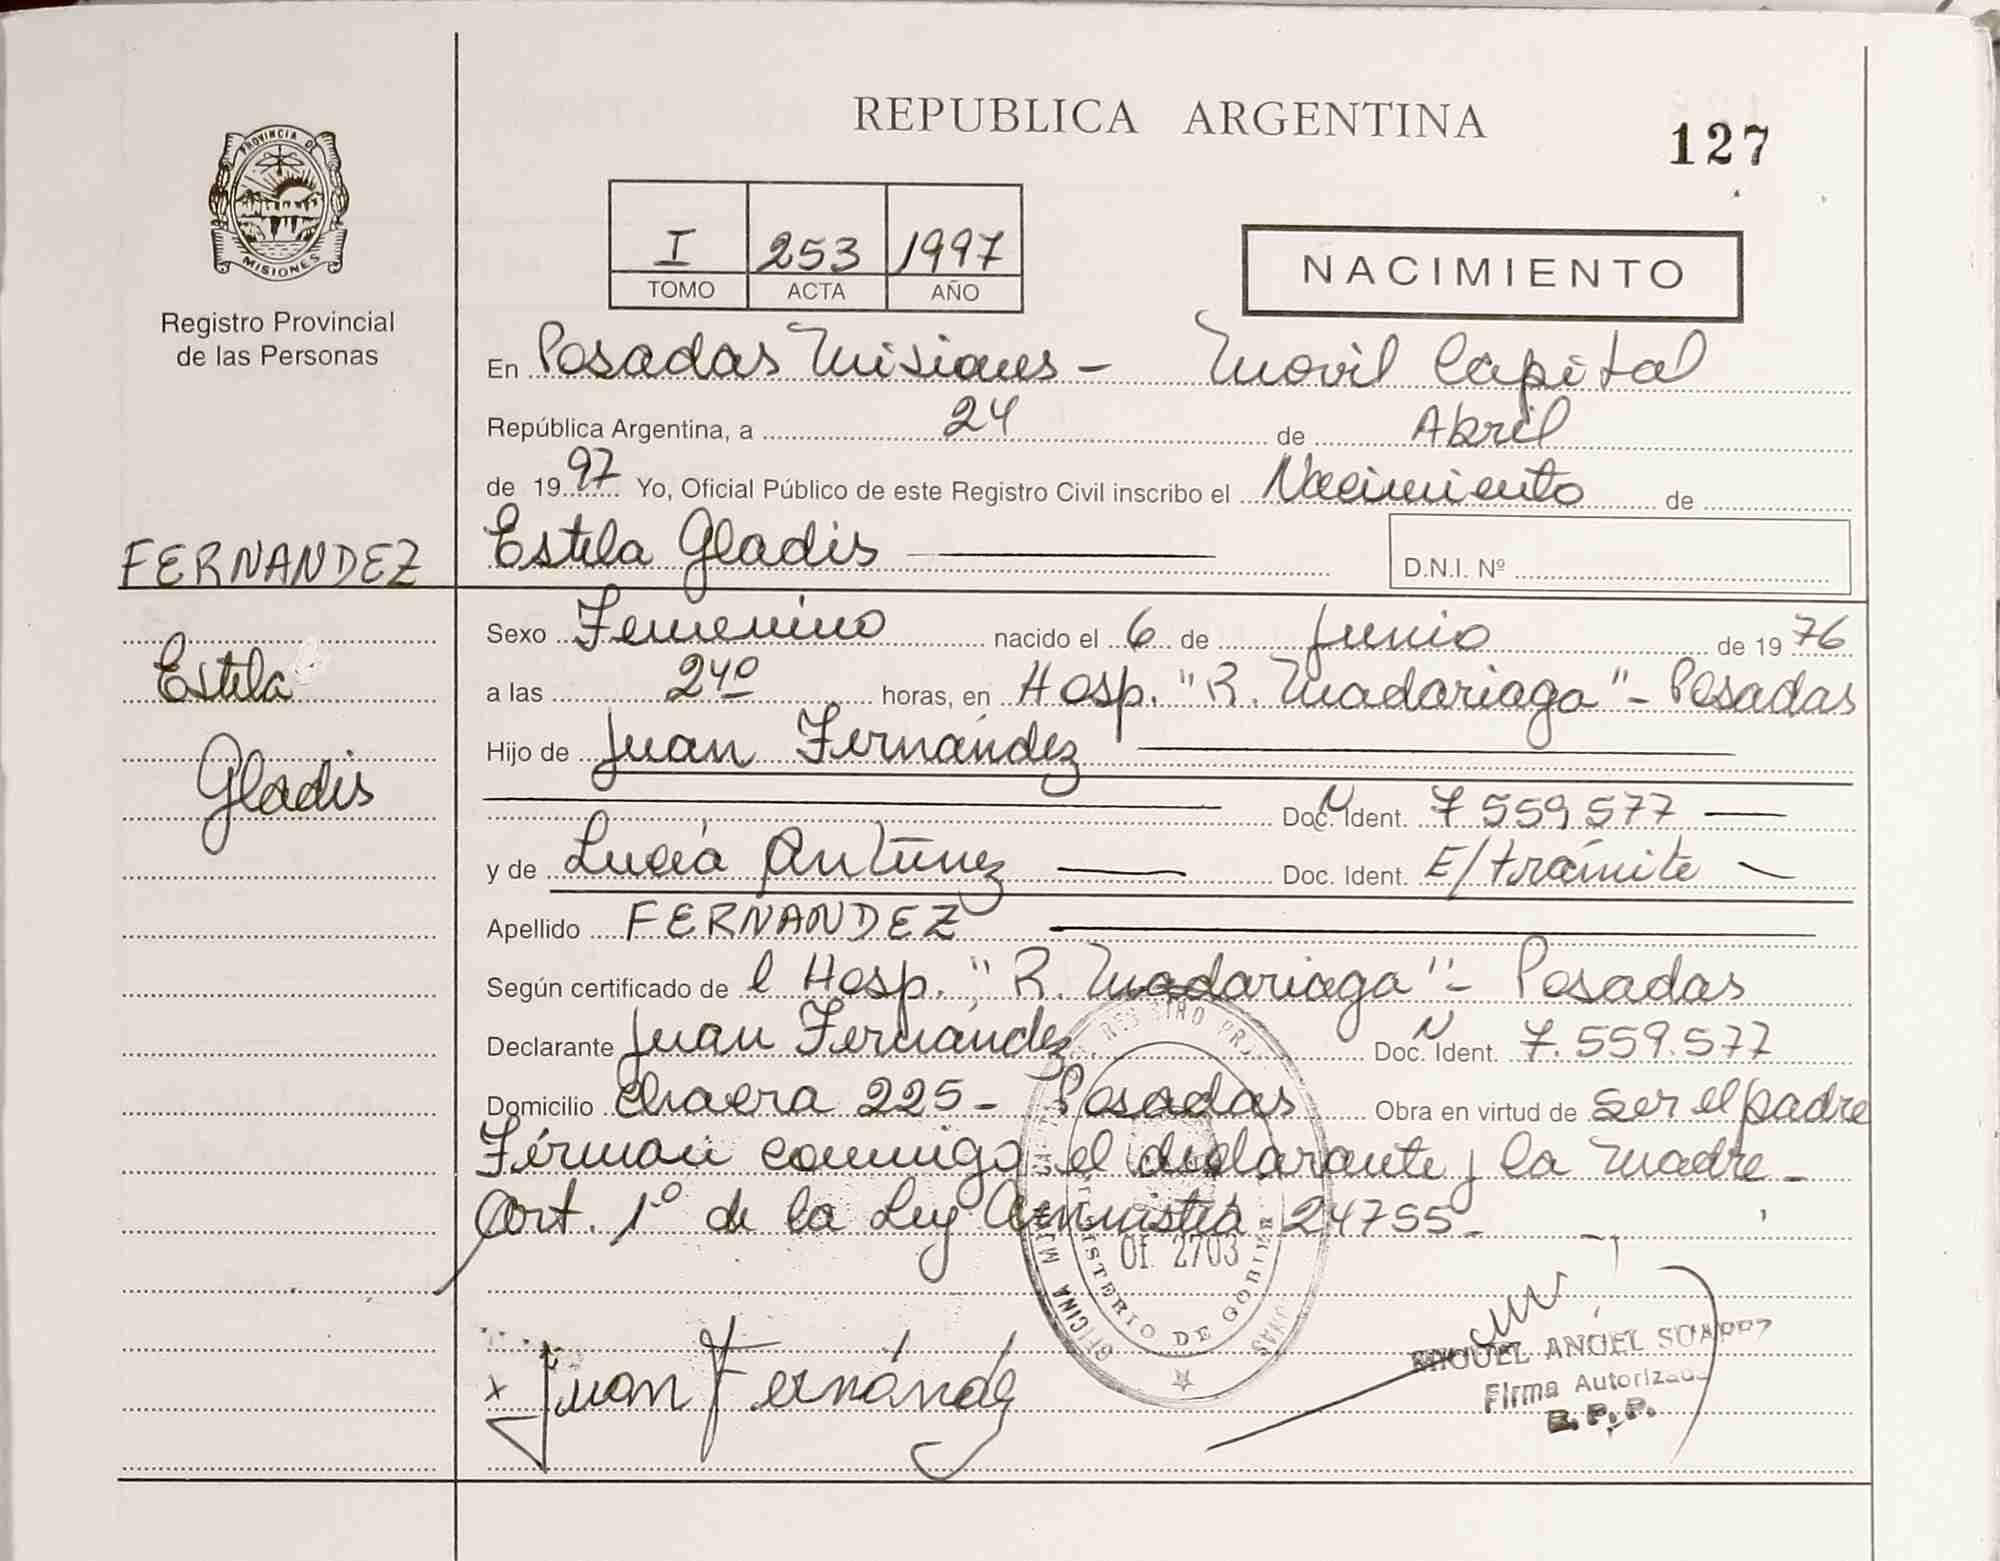 REPUBLICA ARGENTINA
127
PROVINCIA DE
MISIONES
Registro Provincial
de las Personas
I 253 1997
TOMO ACTA AÑO
NACIMIENTO
En Posadas Misiones - Movil Capital
República Argentina, a 24 de Abril
de 1997 Yo, Oficial Público de este Registro Civil inscribo el Nacimiento de
FERNANDEZ
Estela Gladis
D.N.I. Nº
Estela
Gladis
Sexo Femenino nacido el 6 de Junio de 1976
a las 24º horas, en Hosp. "R. Madariaga" - Posadas
Hijo de Juan Fernández
Doc. N Ident. 7 559 577
y de Lucía Antúnez Doc. Ident. E/trámite
Apellido FERNANDEZ
Según certificado de l Hosp. "R. Madariaga" - Posadas
Declarante Juan Fernández Doc. N Ident. 7.559.577
Domicilio Chacra 225 - Posadas Obra en virtud de ser el padre
Firman conmigo el declarante y la madre -
Art. 1º de la Ley Amnistía 24755 -
OFICINA
Of. 2703
MINISTERIO DE GOBIERNO
x Juan Fernández
MIGUEL ANGEL SUAREZ
Firma Autorizada
R. P. P.